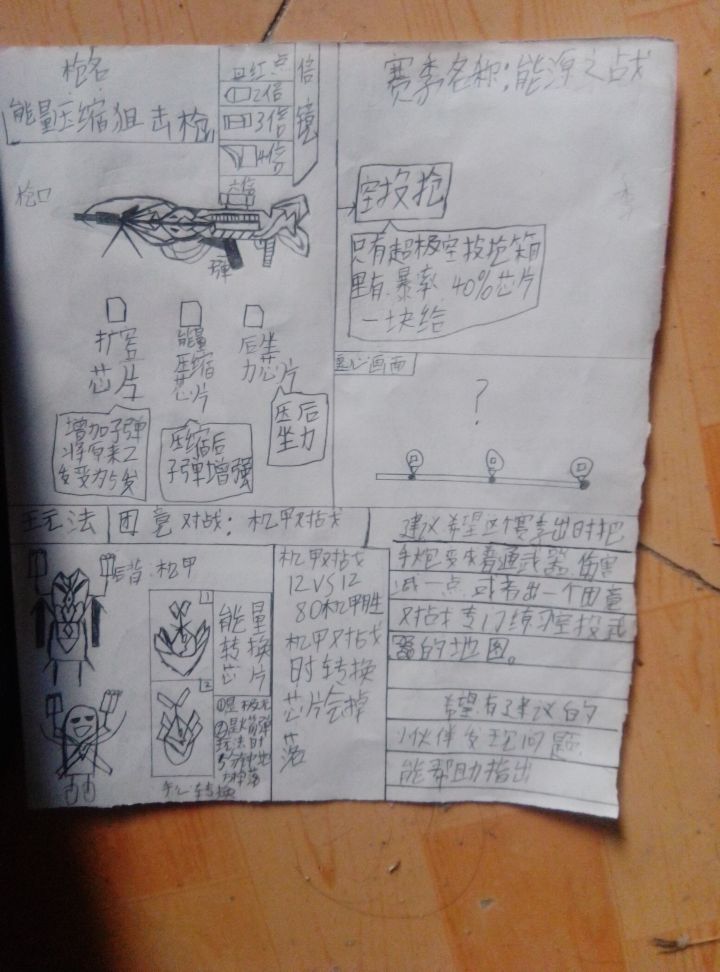 枪名
能量压缩狙击枪
红点
2倍
3倍
4倍
六倍
倍镜
枪口
子弹
扩容
芯片
能量
压缩
芯片
后坐
力芯片
增加子弹
将原来2
发变为5发
压缩后
子弹增强
压后
坐力
赛季名称:能源之战
空投抢
只有超极空投抢箱
里有.暴率.40%芯片
一块给
画面
?
玩法
团竟对战:机甲对战
后背.机甲
1
2
能量
转换
芯片
手心转换
机甲对战
12VS12
80机甲胜
机甲对战
时转换
芯片会掉
落
建议希望这个赛季出时把
手炮变成普通武器.伤害
减一点.或者出一个团竟
对战专门练习空投武
器的地图。
希望有建议的
小伙伴发现问题.
能帮助指出